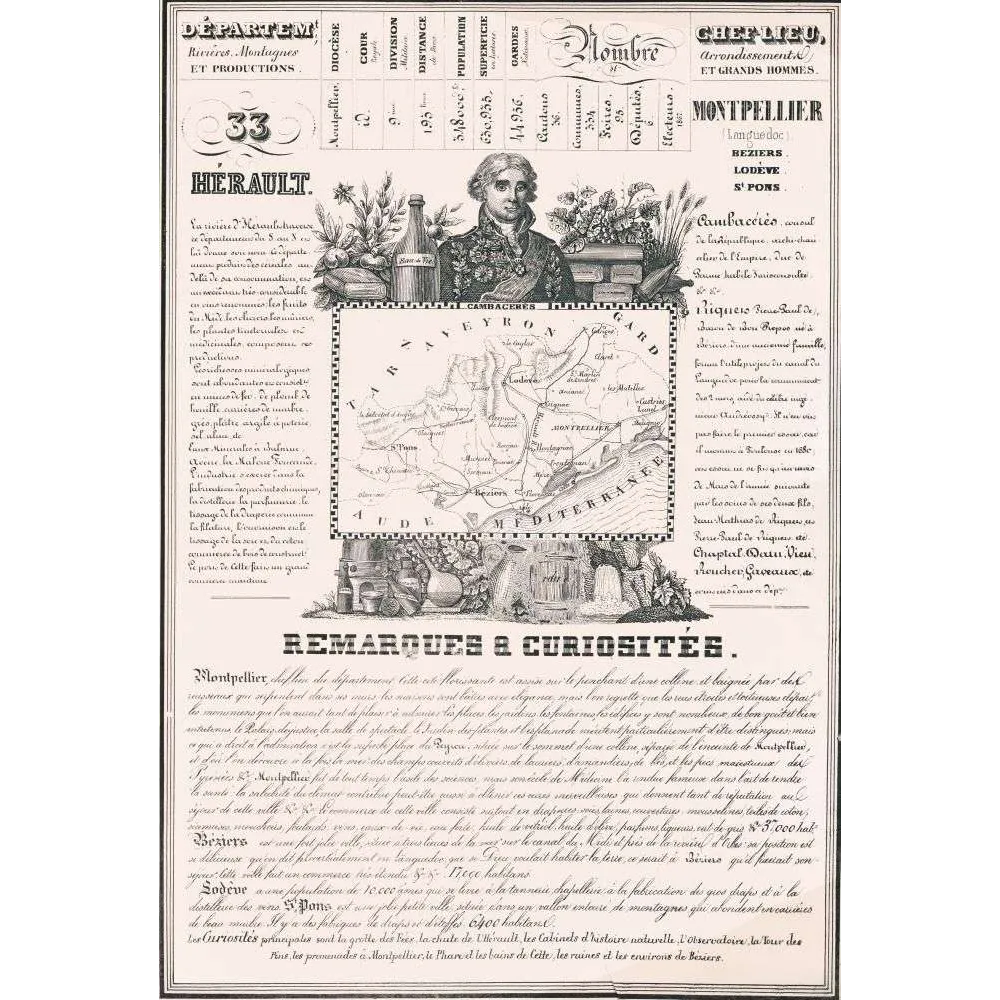 DÉPARTEMt,
Rivières, Montagnes
ET PRODUCTIONS.
DIOCÈSE
Montpellier.
COUR
Royale
id
DIVISION
Militaire
9me
DISTANCE
de Paris
193 lieues
POPULATION
SUPERFICIE
en hectares
630,935.
GARDES
Nationaux.
44936.
Nombre
Cantons
36.
Communes,
334
Foires,
95
Députés,
6
Electeurs.
CHEF-LIEU,
Arrondissements
ET GRANDS HOMMES.
33
HÉRAULT.
MONTPELLIER
(Languedoc).
BEZIERS.
LODÈVE.
St PONS.
La rivière d'Hérault traverse
ce département du S au S et
lui donne son nom. Ce départe-
ment produit des céréales au
delà de sa consommation, est
un revenu très considérable
en vins renommés; les fruits
du Midi, les chênes, les mûriers,
les plantes tinctoriales et
médicinales, composent ses
productions.
Les richesses minéralogiques
sont abondantes et consistt
en mines de fer, de plomb, de
houille, carrières de marbre,
grès, plâtre, argile à poterie,
sel, alun, &c
Eaux Minérales à Balaruc,
Avène, la Malou,
L'industrie s'exerce dans la
fabrication des produits chimiques,
la distillerie, la parfumerie, le
tissage de la draperie commune
la filature, l'ouvraison et le
tissage de la soie et du coton
commerce de bois de construct.
Le port de Cette fait un grand
commerce maritime
Cambacérès, consul
de la République, archi-chan
celier de l'Empire, duc de
Parme habile Jurisconsulte
&c &c.
Riquet, Pierre Paul de,
Baron de Bon Repos né à
Béziers d'une ancienne famille,
forma l'utile projet du canal du
Languedoc pour la communicat
des 2 mers, aidé du célèbre ingé-
nieur Andréossy. Il n'en vit
pas faire le premier essai, car
il mourut à Toulouse en 1680,
cet essai ne se fit qu'au mois
de Mai de l'année suivante
par les soins de ses deux fils,
Jean Mathias de Riquet, et
Pierre Paul de Riquet &c
Chaptal, Daru, Vien,
Roucher, Gaveaux, &c
sont nés dans ce dépt.
Eau de Vie
CAMBACÉRÈS
TARN
AVEYRON
GARD
AUDE
MEDITERRANÉE
le Caylar
Ganges
Lodève
St Martin
de Londres
Aniane
Gignac
les Matelles
Castries
Lunel
MONTPELLIER
Mauguio
St Gervais
Olargues
St Pons
Clermont
Montagnac
Frontignan
Mèze
Murviel
Servian
Béziers
Olonzac
REMARQUES & CURIOSITÉS.
Montpellier, chef-lieu du département. Cette cité florissante est assise sur le penchant d'une colline et baignée par des
ruisseaux qui serpentent dans ses murs, les maisons sont bâties avec élégance, mais l'on regrette que les rues étroites et tortueuses déparent
les monuments que l'on aurait tant de plaisir à admirer. Les places, les jardins, les fontaines, les édifices y sont nombreux, de bon goût et bien
entretenus. Le Palais de justice, la salle de spectacle, le Jardin des plantes et l'esplanade méritent particulièrement d'être distingués; mais
ce qui a droit à l'admiration c'est la superbe place du Peyrou, située sur le sommet d'une colline, séparée de l'enceinte de Montpellier,
et d'où l'on découvre à la fois la mer, des champs couverts d'oliviers, de lauriers, d'amandiers, de blés, et les pics majestueux des
Pyrénées &c. Montpellier fut de tout temps l'asile des sciences, mais son école de Médecine l'a rendue fameuse dans l'art de rendre
la santé. La salubrité du climat contribue peut-être aussi à obtenir ces cures merveilleuses qui donnent tant de réputation au
séjour de cette ville &c &c. Le commerce de cette ville consiste surtout en draperies, soies, laines, couvertures, mousselines, toiles de coton,
siamoises, mouchoirs, foulards, vins, eaux-de-vie, eau forte, huile de vitriol, huile d'olive, parfums, liqueurs, vert de gris &c 37,000 habts
Béziers est une fort jolie ville, située à trois lieues de la mer sur le canal du Midi et près de la rivière d'Orbe; sa position est
si délicieuse qu'on dit proverbialement en Languedoc, que si Dieu voulait habiter la terre, ce serait à Béziers qu'il fixerait son
séjour. Cette ville fait un commerce très étendu &c &c. 17,000 habitans.
Lodève a une population de 10,000 âmes qui se livre à la tannerie, chapellerie, à la fabrication des gros draps et à la
distillerie des vins. St Pons est une jolie petite ville, située dans un vallon entouré de montagnes qui abondent en carrières
de beau marbre. Il y a des fabriques de draps et d'étoffes. 6400 habitans.
Les Curiosités principales sont la grotte des Fées, la chute de l'Hérault, les Cabinets d'histoire naturelle, l'Observatoire, la Tour des
Pins, les promenades à Montpellier, le Phare et les bains de Cette, les ruines et les environs de Béziers.